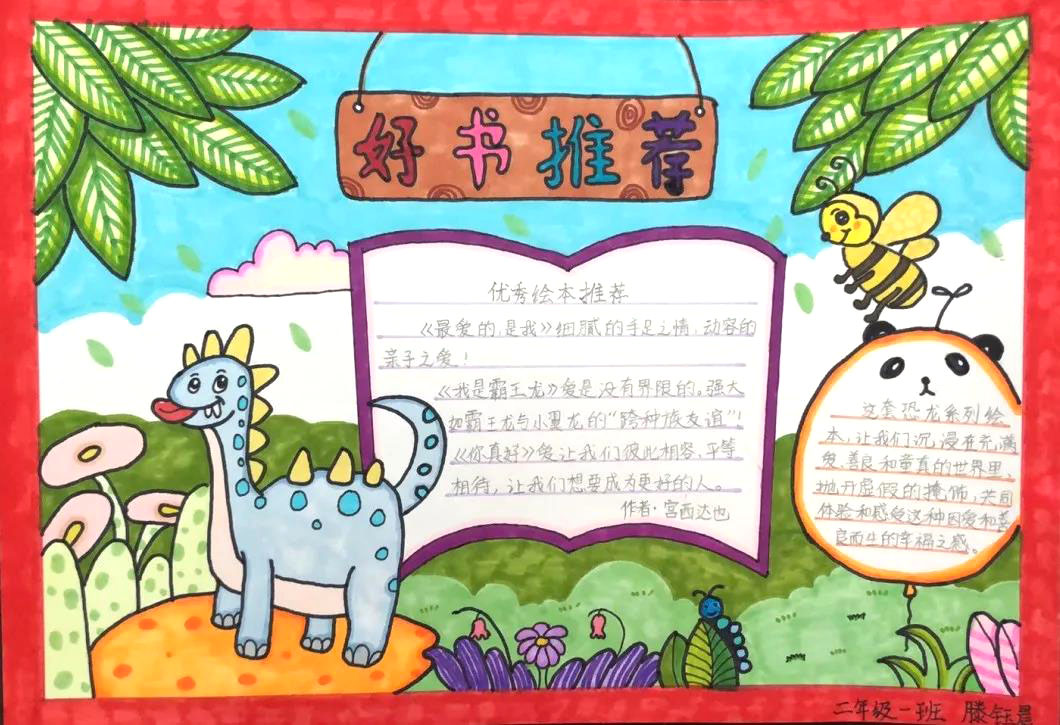 好书推荐
优秀绘本推荐
《最爱的,是我》细腻的手足之情,动容的
亲子之爱!
《我是霸王龙》爱是没有界限的。强大
如霸王龙与小翼龙的“跨种族友谊”!
《你真好》爱让我们彼此相容,平等
相待,让我们想要成为更好的人。
作者·宫西达也
这套恐龙系列绘
本,让我们沉浸在充满
爱、善良和童真的世界里,
抛开虚假的掩饰,共同
体验和感受这种因爱和善
良而生的幸福之感。
二年级一班 滕钰